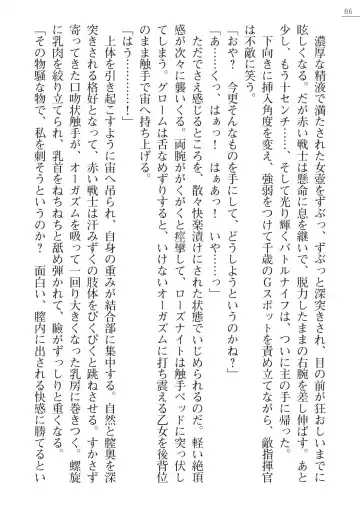 86
濃厚な精液で満たされた女壺をずぶっ、ずぶっと深突きされ、目の前が狂おしいまでに
眩しくなる。だが赤い戦士は懸命に息を継いで、脱力したままの右腕を差し伸ばす。あと
少し、もう十センチ……、そして光り輝くバトルナイフは、ついに主の手に帰った。
下向きに挿入角度を変え、強弱をつけて千歳のGスポットを責め立てながら、敵指揮官
は不敵に笑う。
「おや？ 今更そんなものを手にして、どうしようというのかね？」
「あ……くっ、はぁっ！ はぁぁっ！ いや……っ！」
ただでさえ感じるところを、散々快楽漬けにされた状態でいじめられるのだ。軽い絶頂
感が次々に襲いくる。両腕ががくがくと痙攣して、ローズナイトは触手ベッドに突っ伏し
てしまう。グロームは舌なめずりすると、いけないオーガズムに打ち震える乙女を後背位
のまま触手で宙へ持ち上げる。
「はう…………！」
上体を引き起こすように宙へ吊られ、自身の重みが結合部に集中する。自然と膣奥を深
突きされる格好となって、赤い戦士は汗みずくの肢体をぴくぴくと跳ねさせる。すかさず
寄ってきた口吻状触手が、オーガズムを迎えて一回り大きくなった乳房に巻きつく。螺旋
に乳肉を絞り立てられ、乳首をねちねちと舐め弾かれて、瞼がずっしりと重くなる。
「その物騒な物で、私を刺そうというのか？ 面白い、膣内に出される快感に勝てるとい